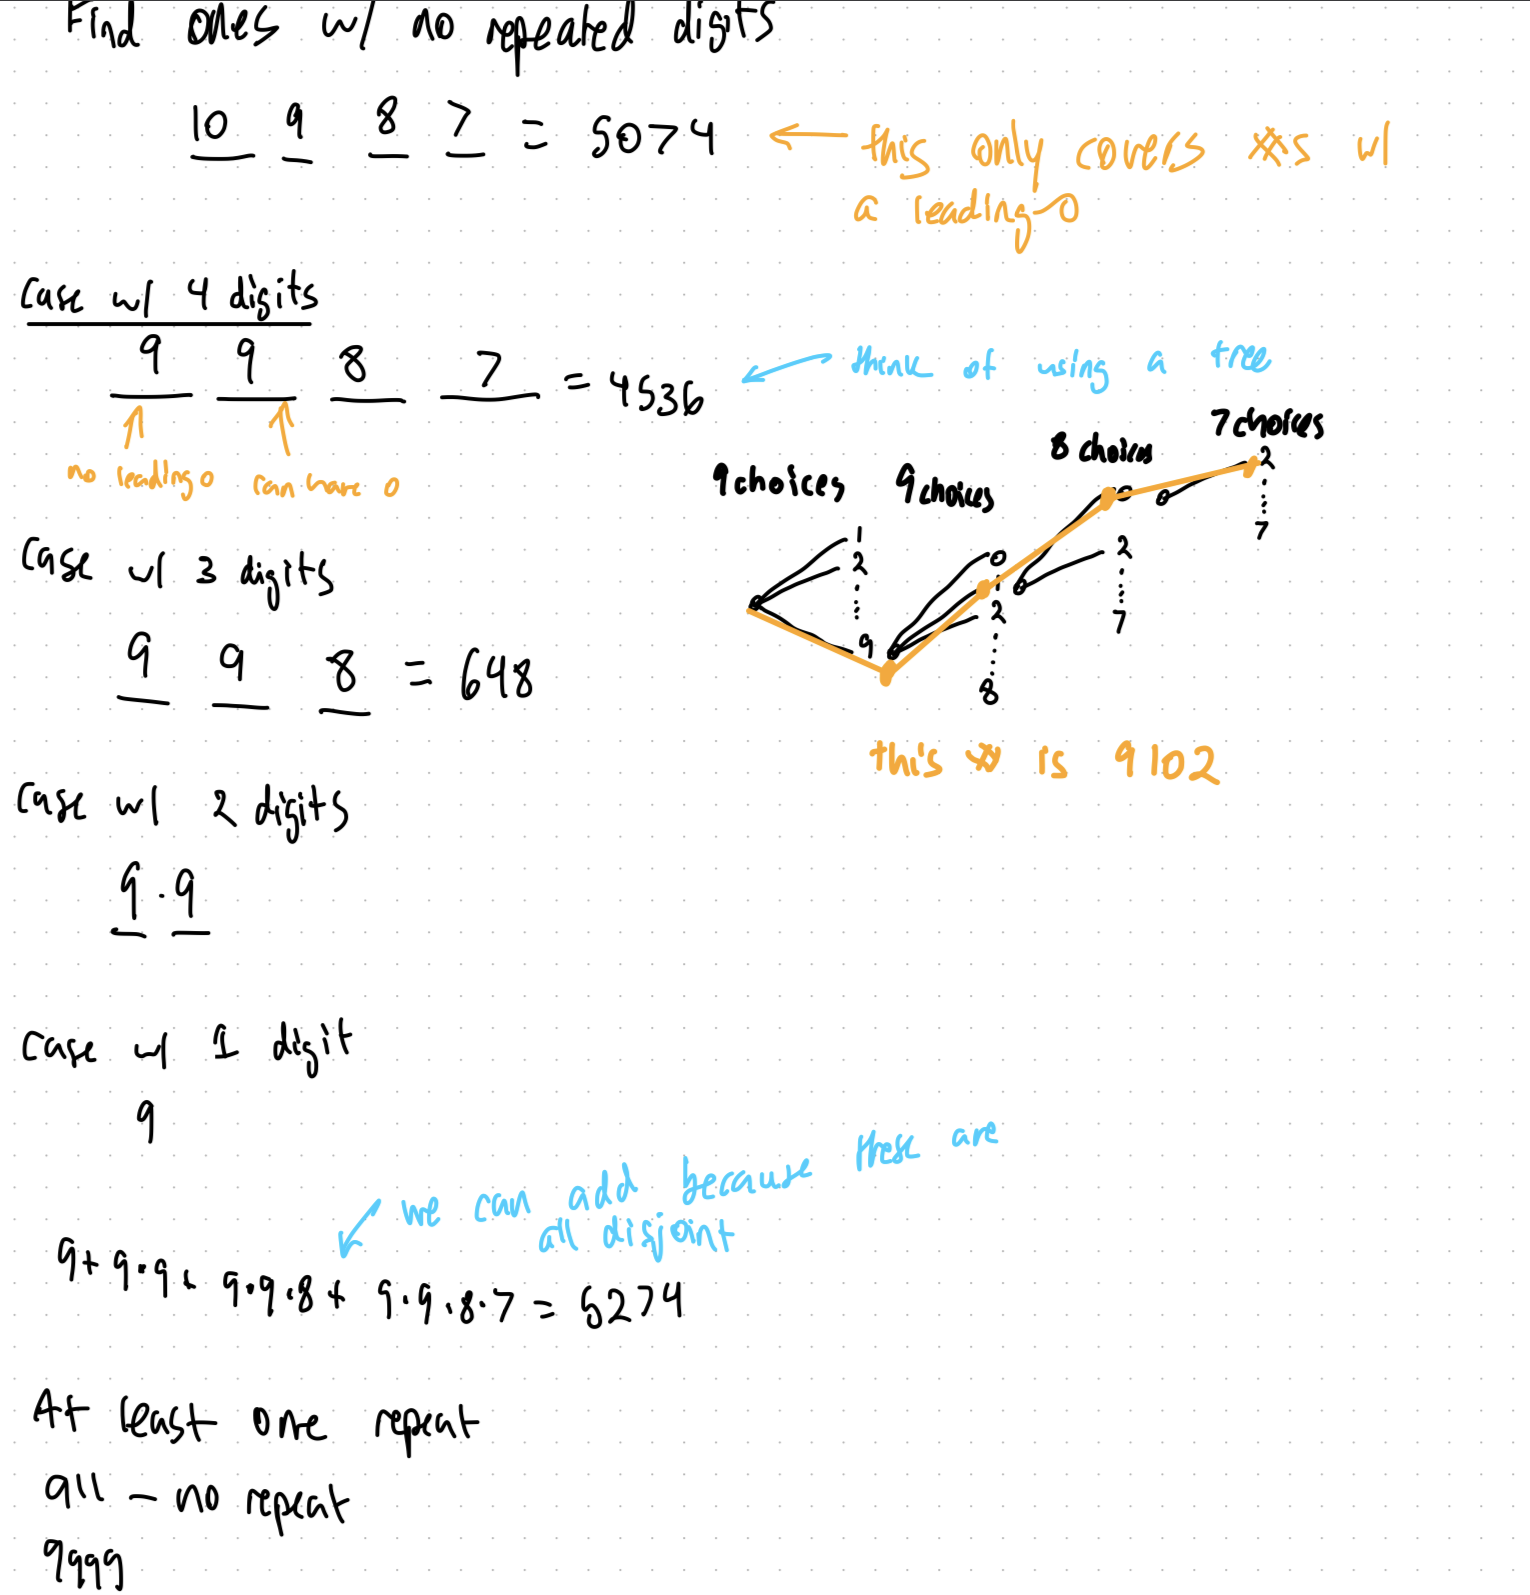 Find ones w/ no repeated digits
10 9 8 7 = 5074 ← this only covers #s w/
a leading 0
Case w/ 4 digits
9 9 8 7 = 4536 think of using a tree
no leading 0 can have 0
9 choices 9 choices 8 choices 7 choices
1
2
9
0
1
2
8
0
2
7
2
7
this # is 9102
Case w/ 3 digits
9 9 8 = 648
Case w/ 2 digits
9 · 9
Case w/ 1 digit
9
we can add because these are
all disjoint
9 + 9·9 + 9·9·8 + 9·9·8·7 = 5274
At least one repeat
all - no repeat
9999